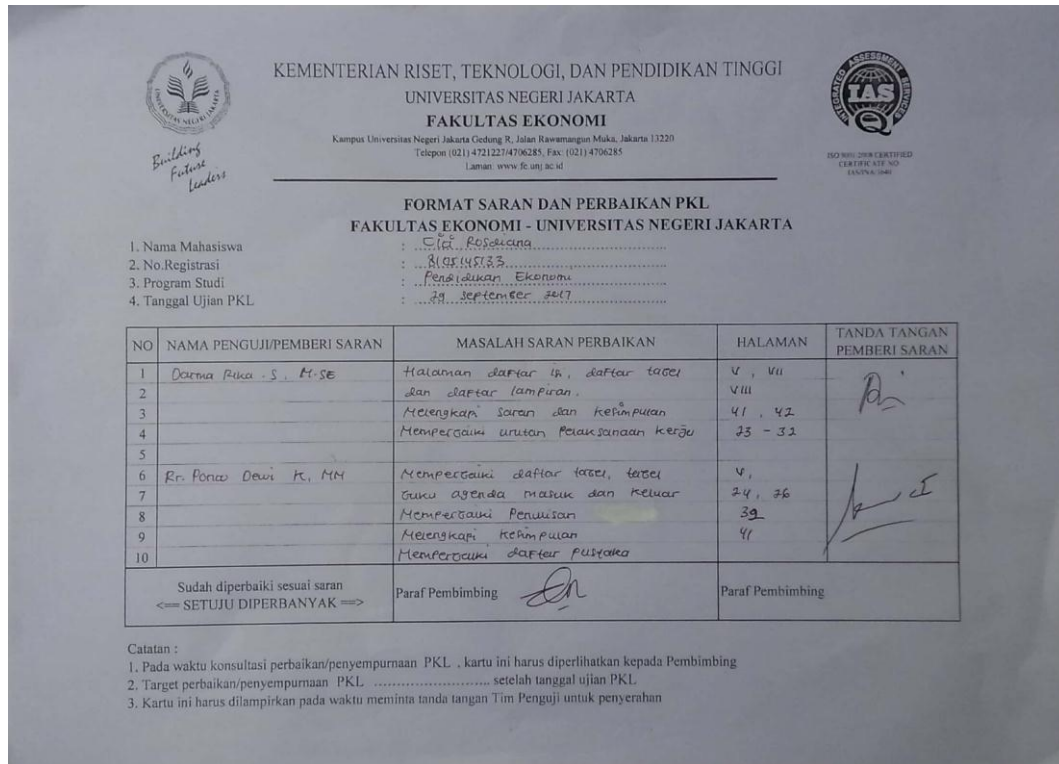 KEMENTERIAN RISET, TEKNOLOGI, DAN PENDIDIKAN TINGGI
UNIVERSITAS NEGERI JAKARTA
FAKULTAS EKONOMI
Kampus Universitas Negeri Jakarta Gedung R, Jalan Rawamangun Muka, Jakarta 13220
Telepon (021) 4721227/4706285, Fax: (021) 4706285
Laman: www.fe.unj.ac.id
Building
Future
Leaders
INTEGRATED ASSESSMENT SERVICES
IAS
ISO 9001:2008 CERTIFIED
CERTIFICATE NO
FORMAT SARAN DAN PERBAIKAN PKL
FAKULTAS EKONOMI - UNIVERSITAS NEGERI JAKARTA
1. Nama Mahasiswa : Cici Rosdiana
2. No.Registrasi : 8105145133
3. Program Studi : Pendidikan Ekonomi
4. Tanggal Ujian PKL : 29 September 2017
NO NAMA PENGUJI/PEMBERI SARAN MASALAH SARAN PERBAIKAN HALAMAN TANDA TANGAN PEMBERI SARAN
1 Darma Rika .S, M.SE Halaman daftar isi, daftar tabel V, VII
2 dan daftar lampiran. VIII
3 Melengkapi saran dan kesimpulan 41, 42
4 Memperbaiki urutan Pelaksanaan kerja 23 - 32
5
6 Rr. Ponco Dewi K, MM Memperbaiki daftar tabel, tabel V,
7 buku agenda masuk dan keluar 24, 26
8 Memperbaiki Penulisan 39
9 Melengkapi kesimpulan 41
10 Memperbaiki daftar pustaka
Sudah diperbaiki sesuai saran
<== SETUJU DIPERBANYAK ==>
Paraf Pembimbing
Paraf Pembimbing
Catatan :
1. Pada waktu konsultasi perbaikan/penyempurnaan PKL , kartu ini harus diperlihatkan kepada Pembimbing
2. Target perbaikan/penyempurnaan PKL ............................ setelah tanggal ujian PKL
3. Kartu ini harus dilampirkan pada waktu meminta tanda tangan Tim Penguji untuk penyerahan